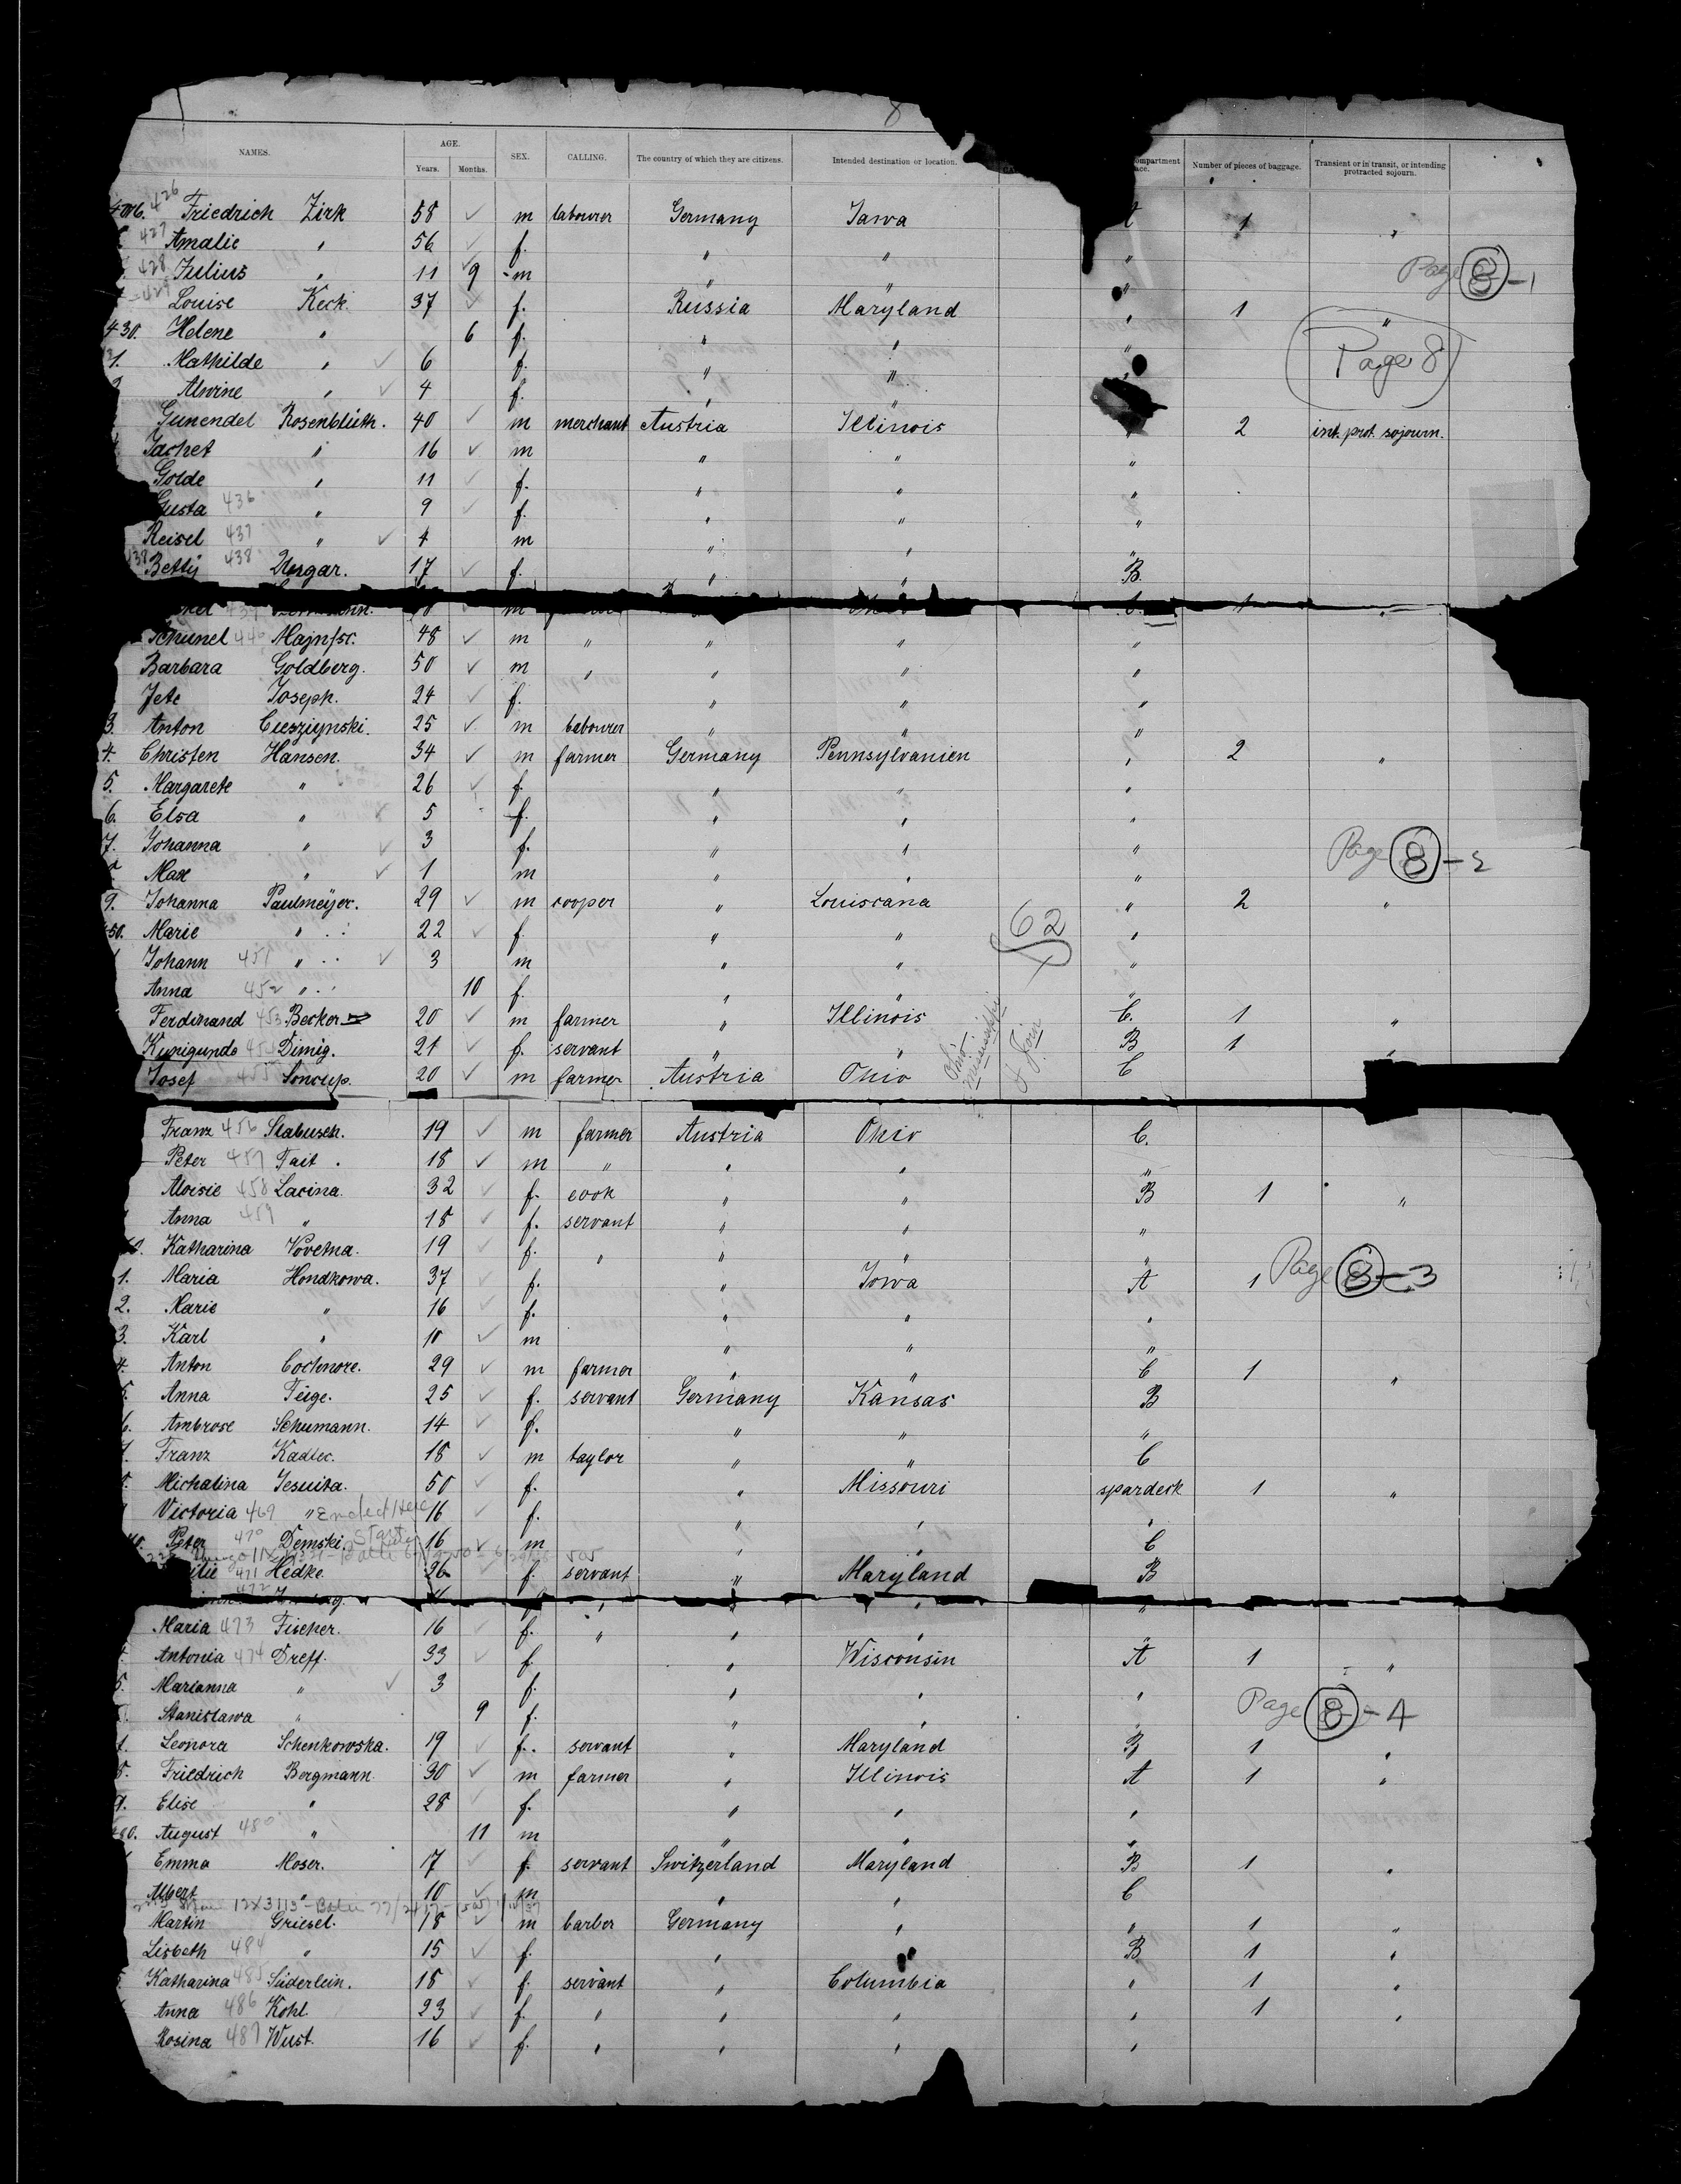 8
NAMES. AGE. SEX. CALLING. The country of which they are citizens. Intended destination or location. ompartment Number of pieces of baggage. Transient or in transit, or intending protracted sojourn.
Years. Months.
426 Friedrich Zirk 58 ✓ m labourer Germany Iawa 1 "
427 Amalie " 56 ✓ f. " " "
428 Julius " 11 9 m " " "
Page 8-1
429 Louise Keck. 37 ✓ f. Russia Maryland " 1 "
430. Helene " 6 f. " " "
1. Mathilde " ✓ 6 f. " " "
Page 8
Alwine " ✓ 4 f. " "
Gunendel Rosenblüth. 40 ✓ m merchant Austria Illinois " 2 int. prot. sojourn.
Jachet " 16 ✓ m " " "
Golde " 11 ✓ f. " " "
Gusta 436 " 9 ✓ f. " " "
Reisel 437 " ✓ 4 m " " "
Betty 438 Ungar. 17 ✓ f. " " B.
m 1 "
440 48 ✓ m " " " "
Barbara Goldberg. 50 ✓ m " " " "
Jete Joseph. 24 ✓ f. " " "
3. Anton 25 ✓ m labourer " " "
4. Christen Hansen. 34 ✓ m farmer Germany Pennsylvanien " 2 "
5. Margarete " 26 ✓ f. " " "
6. Elsa " ✓ 5 f. " " "
7. Johanna " ✓ 3 f. " " "
Page 8-2
Max " ✓ 1 m " " "
9. Johanna Paulmeijer. 29 ✓ m cooper " Louisiana " 2 "
62
450. Marie " 22 ✓ f. " " "
Johann 451 " ✓ 3 m " " "
Anna 452 " 10 f. " " "
Ferdinand 453 Becker 20 ✓ m farmer " Illinois C. 1 "
Kunigunde 454 Dimig. 21 ✓ f. servant " " B 1 "
Ohio
Mississippi
Josef 455 20 ✓ m farmer Austria Ohio C
Franz 456 Slabusch. 19 ✓ m farmer Austria Ohio C.
Peter 457 Tait. 18 ✓ m " " " "
Aloisie 458 Lacina. 32 ✓ f. cook " " B 1 "
Anna 459 " 18 ✓ f. servant " " "
Katharina 19 ✓ f. " " " "
1. Maria Hondkowa. 37 ✓ f. " Iowa A 1
Page 8-3
2. Marie " 16 ✓ f. " " "
3. Karl " 10 ✓ m " " "
4. Anton 29 ✓ m farmer " " C 1 "
5. Anna Tiege. 25 ✓ f. servant Germany Kansas B
6. Ambrose Schumann. 14 ✓ f. " " "
7. Franz Kadlec. 18 ✓ m taylor " " C
Michalina Jesuita. 50 ✓ f. " Missouri spardeck 1 "
Victoria 469 " 16 ✓ f. " " "
Peter 470 Demski. 16 ✓ m " " C
471 Hedke. 26 ✓ f. servant " Maryland B
472
Maria 473 Fischer. 16 ✓ f. " " " "
Antonia 474 Dreff. 33 ✓ f. " Wisconsin A 1 "
5. Marianna " ✓ 3 f. " " "
Page 8-4
Stanislawa " 9 f. " " "
Leonora Schenkowska. 19 ✓ f. servant " Maryland B 1 "
8. Friedrich Bergmann. 30 ✓ m farmer " Illinois A 1 "
9. Elise " 28 ✓ f. " " "
480. August 480 " 11 m " " "
Emma Moser. 17 ✓ f. servant Switzerland Maryland B 1 "
Albert " 10 ✓ m " " C
Martin Griesel. 18 ✓ m barber Germany " " 1 "
Lisbeth 484 " 15 ✓ f. " " B 1 "
Katharina 485 Süderlein. 18 ✓ f. servant " Columbia " 1 "
Anna 486 Kohl. 23 ✓ f. " " " " 1 "
Rosina 487 Wust. 16 ✓ f. " " " "